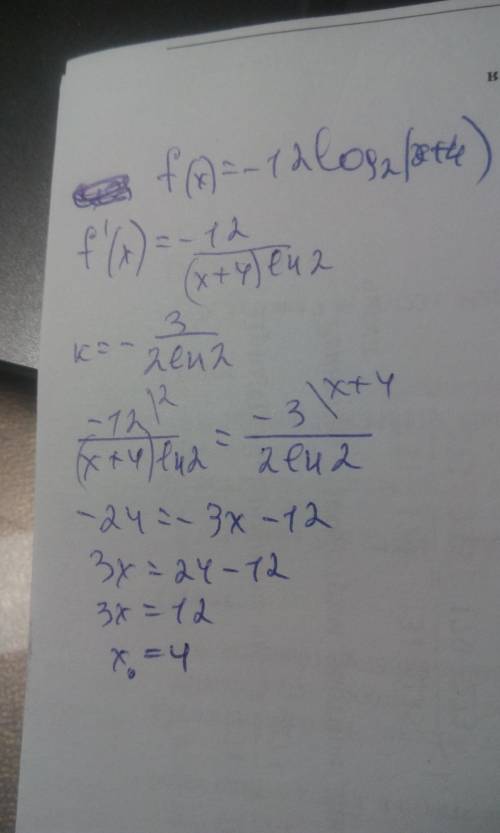 f(x)=-12log₂(x+4)
f'(x)=-12/((x+4)ln2)
к=-3/(2ln2)
-12\2/((x+4)ln2)=-3\x+4/(2ln2)
-24=-3x-12
3x=24-12
3x=12
x₀=4